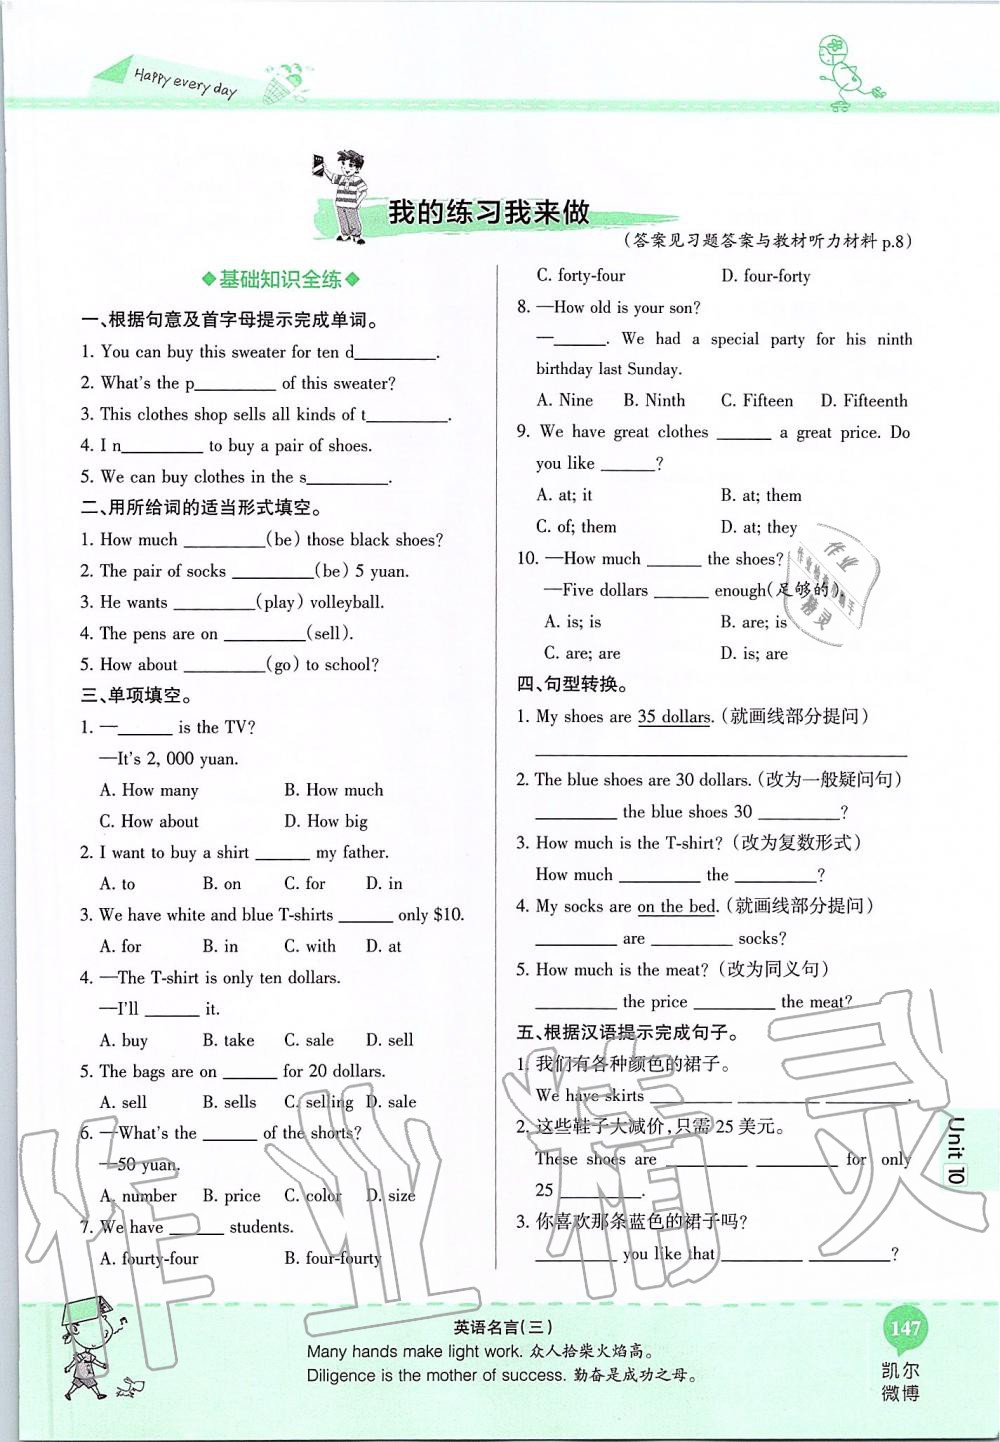 Happy every day
我的练习我来做
(答案见习题答案与教材听力材料 p.8)
◆基础知识全练◆
一、根据句意及首字母提示完成单词。
1. You can buy this sweater for ten d________.
2. What's the p________ of this sweater?
3. This clothes shop sells all kinds of t________.
4. I n________ to buy a pair of shoes.
5. We can buy clothes in the s________.
二、用所给词的适当形式填空。
1. How much ________(be) those black shoes?
2. The pair of socks ________(be) 5 yuan.
3. He wants ________(play) volleyball.
4. The pens are on ________(sell).
5. How about ________(go) to school?
三、单项填空。
1. —______ is the TV?
—It's 2, 000 yuan.
A. How many B. How much
C. How about D. How big
2. I want to buy a shirt ______ my father.
A. to B. on C. for D. in
3. We have white and blue T-shirts ______ only $10.
A. for B. in C. with D. at
4. —The T-shirt is only ten dollars.
—I'll ______ it.
A. buy B. take C. sale D. sell
5. The bags are on ______ for 20 dollars.
A. sell B. sells C. selling D. sale
6. —What's the ______ of the shorts?
—50 yuan.
A. number B. price C. color D. size
7. We have ______ students.
A. fourty-four B. four-fourty
C. forty-four D. four-forty
8. —How old is your son?
—______. We had a special party for his ninth
birthday last Sunday.
A. Nine B. Ninth C. Fifteen D. Fifteenth
9. We have great clothes ______ a great price. Do
you like ______?
A. at; it B. at; them
C. of; them D. at; they
10. —How much ______ the shoes?
—Five dollars ______ enough(足够的).
A. is; is B. are; is
C. are; are D. is; are
四、句型转换。
1. My shoes are 35 dollars. (就画线部分提问)
________________________________________
2. The blue shoes are 30 dollars. (改为一般疑问句)
________ the blue shoes 30 ________?
3. How much is the T-shirt? (改为复数形式)
How much ________ the ________?
4. My socks are on the bed. (就画线部分提问)
________ are ________ socks?
5. How much is the meat? (改为同义句)
________ the price ________ the meat?
五、根据汉语提示完成句子。
1. 我们有各种颜色的裙子。
We have skirts ________ ________ ________.
2. 这些鞋子大减价,只需 25 美元。
These shoes are ________ ________ for only
25 ________.
3. 你喜欢那条蓝色的裙子吗?
________ you like that ________ ________?
Unit 10
英语名言(三)
Many hands make light work. 众人拾柴火焰高。
Diligence is the mother of success. 勤奋是成功之母。
147
凯尔
微博
作业
精灵
作业精灵